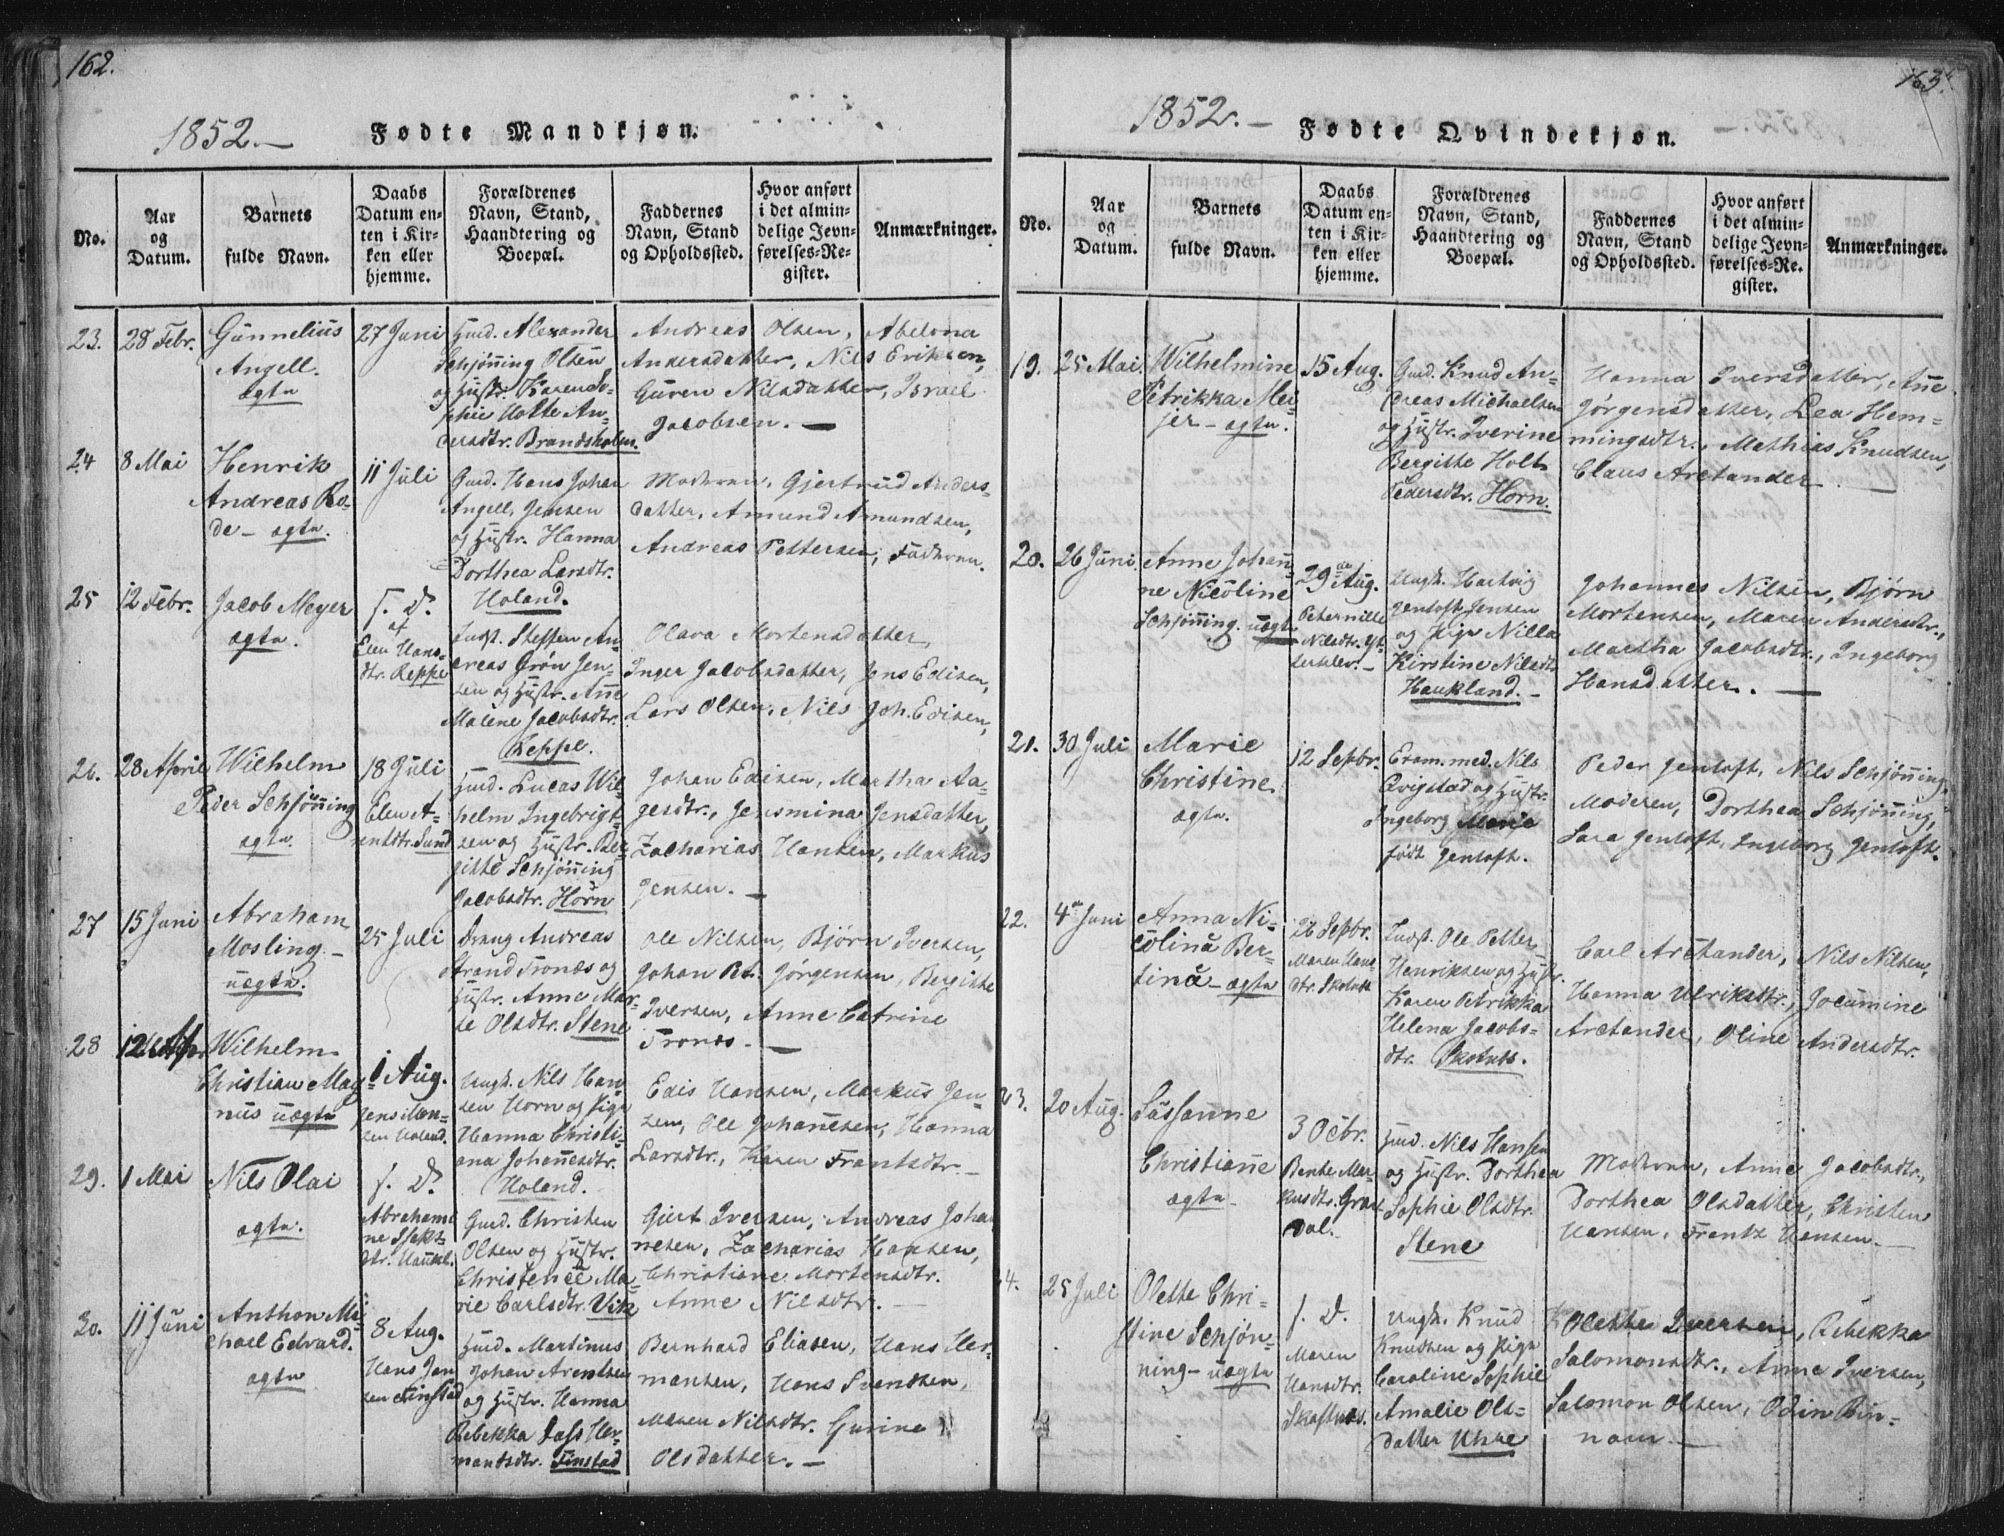 162.
1852.—
Fødte Mandkjøn.
No.
Aar og Datum.
Barnets fulde Navn.
Daabs Datum enten i Kirken eller hjemme.
Forældrenes Navn, Stand, Haandtering og Boepæl.
Faddernes Navn, Stand og Opholdssted.
Hvor anført i det almindelige Jevnførelses-Register.
Anmærkninger.
23. 28 Febr.
Gunnelius
Angell.
ægte
27 Juni
Huusd. Alexander
Schjønning Olsen
og Hustr. Karen So-
phie Hotte An-
dersdtr. Brandsholm.
Andreas Olsen, Abelona
Andersdatter, Nils Eriksen,
Guren Nilsdatter, Israel
Jacobsen. —
24 8 Mai
Henrik
Andreas Ro-
de - ægte.
11 Juli
Gmd. Hans Johan
Angell Jensen
og Hustr. Hanna
Dorthea Larsdtr.
Holand.
Moderen, Gjertrud Anders-
datter, Amund Amundsen,
Andreas Pettersen, Faderen.
25 12 Febr.
Jacob Meyer
ægte.
s. D.
af
Elen Hans-
dtr. Reppe
Indst. Steffen An-
dreas Grøn Jen-
sen og Hustr. Ane
Malene Jacobsdtr.
Reppe.
Olava Mortensdatter,
Inger Jacobsdatter, Jens Edisen,
Lars Olsen, Nils Joh. Edisen,
26. 28 April
Wilhelm
Peder Schjønning
ægte.
18 Juli
Elen A-
rentsdtr. Sund
Huusd. Lucas Wil-
helm Ingebrigt-
sen og Hustr. Ber-
gitte Schjønning
Jacobsdtr. Horn
Johan Edisen, Martha Aa-
gesdtr., Jensmina Jensdatter,
Zacharias Hansen, Markus
Jensen. —
27 15 Juni
Abraham
Mosling. —
uægte.
25 Juli
Dreng Andreas
Strand Tronæs og
Hustr. Anne Mar-
te Olsdtr. Stene
Ole Nilsen, Bjørn Iversen,
Johan Pet. Jørgensen, Bergitte
Iversen, Anne Catrine
Tronæs. —
28 12 Apr
Wilhelm
Christian Mag-
nus uægte
1 Aug.
Jens Mon-
sen Holand.
Ungk. Nils Han-
sen Horn og Pige
Hanna Christi-
ana Johannesdtr.
Holand.
Edis Hansen, Markus Jen-
sen, Ole Johannesen, Hanna
Larsdtr., Karen Frantsdtr. —
29. 1 Mai
Nils Olai
ægte.
s. D.
Abrahami-
ne Isaks-
dtr. Haukl.
Gmd. Christen
Olsen og Hustr.
Christence Ma-
rie Carlsdtr. Vik
Gjert Iversen, Andreas Joha
nesen, Zacharias Hansen,
Christiane Mortensdtr.
Anne Nilsdtr. —
30. 11 Juni
Anthon Mi-
chael Edvard.
ægte
8 Aug.
Hans Jen
sen Finstad
Huusd. Martinus
Johan Arentsen
og Hustr. Hanna
Rebekka Dass Her-
mansdtr. Finstad
Bernhard Eliasen, Hans Her-
mansen, Hans Svendsen,
Maren Nilsdtr. Gurine
Olsdatter. —
163.
1852. —
Fødte Qvindekjøn.
No.
Aar og Datum.
Barnets fulde Navn.
Daabs Datum enten i Kirken eller hjemme.
Forældrenes Navn, Stand, Haandtering og Boepæl.
Faddernes Navn, Stand og Opholdssted.
Hvor anført i det almindelige Jevnførelses-Register.
Anmærkninger.
19. 25 Mai.
Wilhelmine
Petrikka Mei-
jer - ægte.
15 Aug.
Gmd. Knud An-
dreas Michaelsen
og Hustr. Iverine
Bergitte Holt
Pedersdtr. Horn.
Hanna Iversdatter, Ane
Jørgensdatter, Lea Hem-
mingsdtr., Mathias Knudsen,
Claus Arctander.
20. 26 Juni.
Anne Johan-
ne Nicoline
Schjønning. uægte
29de Aug.
Peternille
Nilsdtr. Yt-
terklev. —
Ungk. Hartvig
Gentoft Jensen
og Pige Nilla
Kirstine Nilsdt.
Haukland. —
Johannes Nilsen, Bjørn
Mortensen, Maren Andersdtr.,
Martha Jacobsdtr., Ingeborg
Hansdatter. —
21. 30 Juli
Marie
Christine.
ægte.
12 Sepbr.
Exam. med. Nils
Qvigstad og Hustr.
Ingeborg Marie
født Gentoft.
Peder Gentoft, Nils Schjønning.
Moderen, Dorthea Schjønning,
Sara Gentoft, Ingeborg Gentoft.
22. 4de Juni
Anna Ni-
colina Ber-
tina - ægte
26 Sepbr.
Maren Hans-
dtr.
Indst. Ole Petter
Henriksen og Hustr.
Karen Petrikka
Helena Jacobs-
dtr.
Carl Arctander, Nils Nilsen,
Hanna Ulriksdtr., Jocumine
Arctander, Oline Andersdtr.
23. 20 Aug.
Sussanne
Christiane
ægte
3 Octbr.
Bente Mar-
kusdtr. Grøn
dal.
Huusd. Nils Hansen
og Hustr. Dorthea
Sophie Olsdtr.
Stene
Moderen, Anne Jacobsdtr.,
Dorthea Olsdatter, Christen
Hansen, Frentz Hansen. —
24. 25 Juli
Olette Chri-
stine Schjøn-
ning - uægte
s. D.
Maren
Hansdtr.
Skaftnes.
Ungk. Knud
Knudsen og Pige
Caroline Sophie
Amalie Ols-
datter Uhre
Olette Iversen, Rebekka
Salomonsdtr., Anne Iversen,
Salomon Olsen, Odin Bin-
nam —